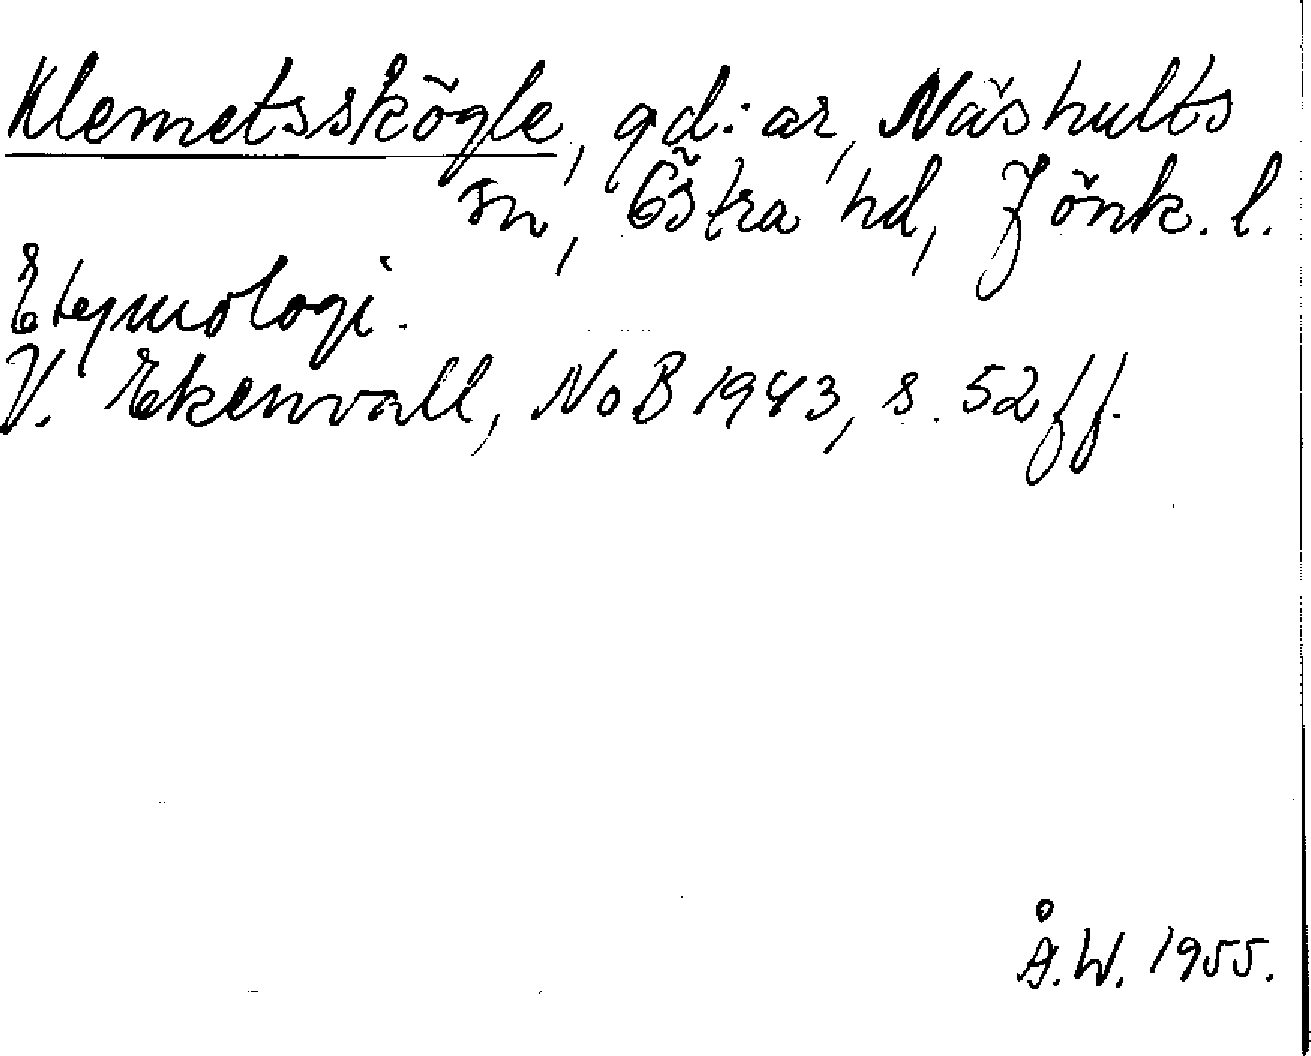 Klemetsskögle, gd:ar, Näshults
sn, Östra hd, Jönk. l.
Etymologi.
V. Ekenvall, NoB 1943, s. 52 ff.
Å.W. 1955.